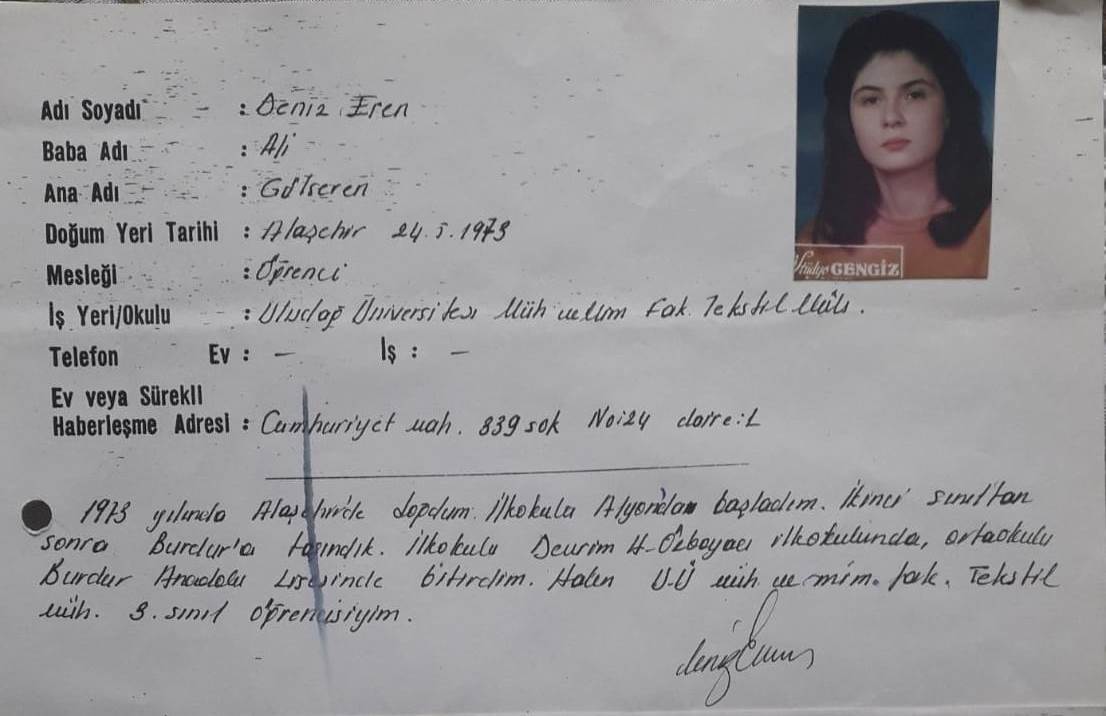 Stüdyo GENGİZ
Adı Soyadı : Deniz Eren
Baba Adı : Ali
Ana Adı : Gülseren
Doğum Yeri Tarihi : Alaşehir 24.5.1973
Mesleği : Öğrenci
İş Yeri/Okulu : Uludağ Üniversitesi Müh ve Mim Fak. Tekstil Müh.
Telefon Ev : - İş : -
Ev veya Sürekli
Haberleşme Adresi : Cumhuriyet mah. 839 sok No:24 daire:1
1973 yılında Alaşehir'de doğdum. İlkokula Afyon'da başladım. İkinci sınıftan
sonra Burdur'a taşındık. İlkokulu Devrim H. Özboyacı ilkokulunda, ortaokulu
Burdur Anadolu Lisesinde bitirdim. Halen U.Ü müh ve mim. fak. Tekstil
müh. 3. sınıf öğrencisiyim.